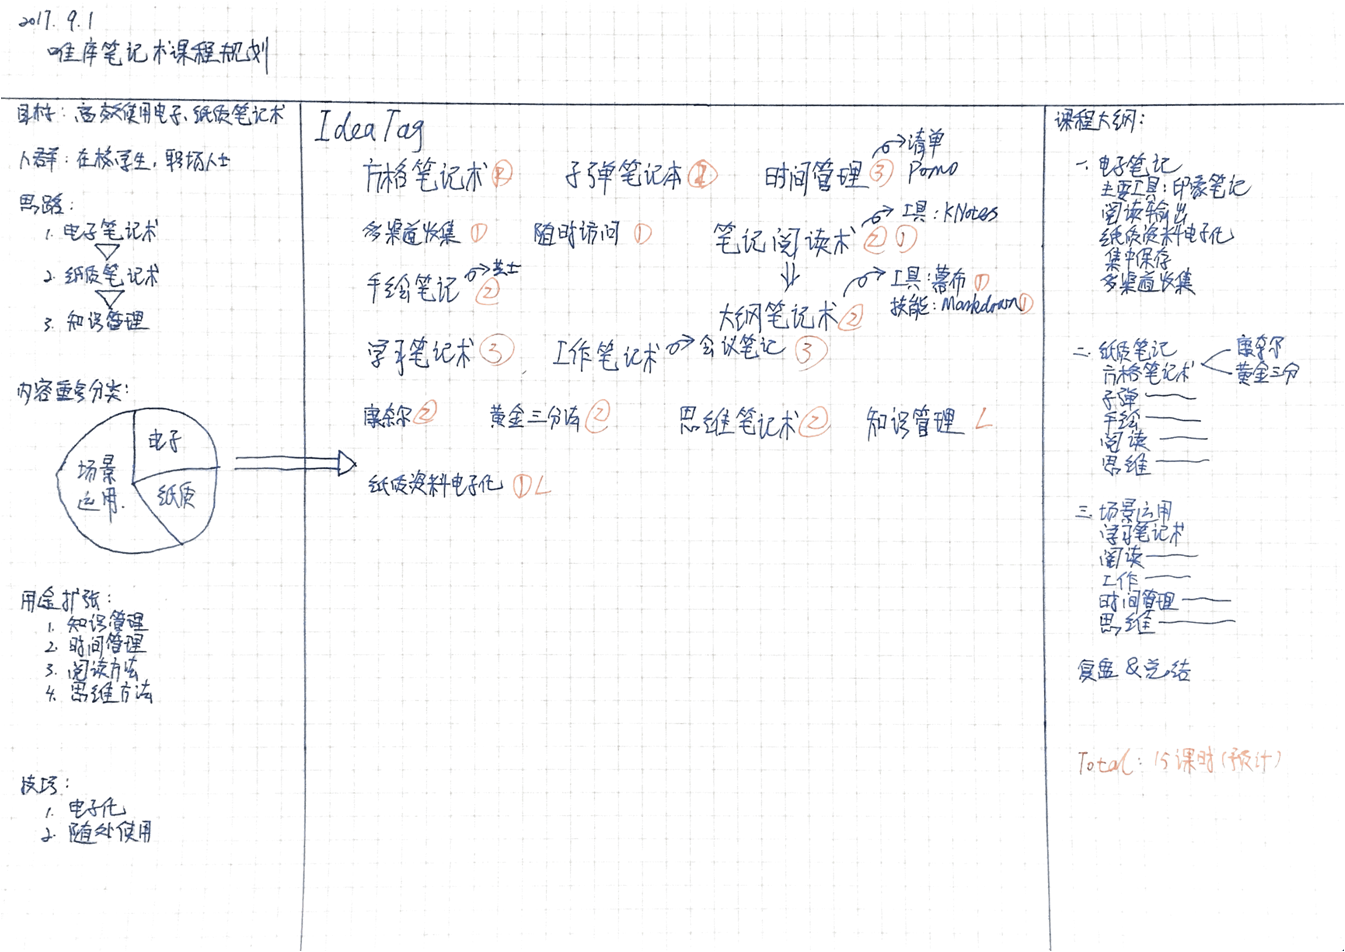 2017.9.1
唯库笔记术课程规划
目标：高效使用电子、纸质笔记术
人群：在校学生，职场人士
思路：
1. 电子笔记术
2. 纸质笔记术
3. 知识管理
内容重多分类：
电子
场景
运用.
纸质
用途扩张：
1. 知识管理
2. 时间管理
3. 阅读方法
4. 思维方法
技巧：
1. 电子化
2. 随处使用
Idea Tag
方格笔记术② 子弹笔记本② 时间管理③ 清单
Pomo
多渠道收集① 随时访问① 笔记阅读术②① 工具：KNotes
手绘笔记② 芝士
大纲笔记术② 工具：幕布①
技能：Markdown①
学习笔记术③ 工作笔记术 会议笔记③
康奈尔② 黄金三分法② 思维笔记术② 知识管理 L
纸质资料电子化①L
课程大纲：
一. 电子笔记
主要工具：印象笔记
阅读输出
纸质资料电子化
集中保存
多渠道收集
二. 纸质笔记
方格笔记术 康奈尔
黄金三分
子弹
手绘
阅读
思维
三. 场景运用
学习笔记术
阅读
工作
时间管理
思维
复盘&总结
Total：15课时（预计）